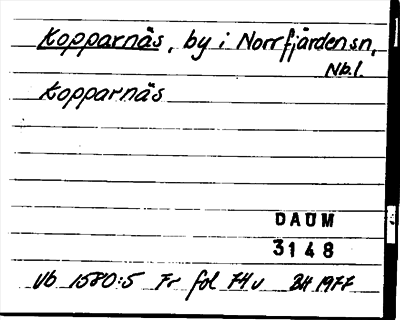 Kopparnäs, by i Norrfjärdensn,
Nbl.
Kopparnäs
DAUM
3148
Vb 1580:5 Fr fol 74v BH 1977